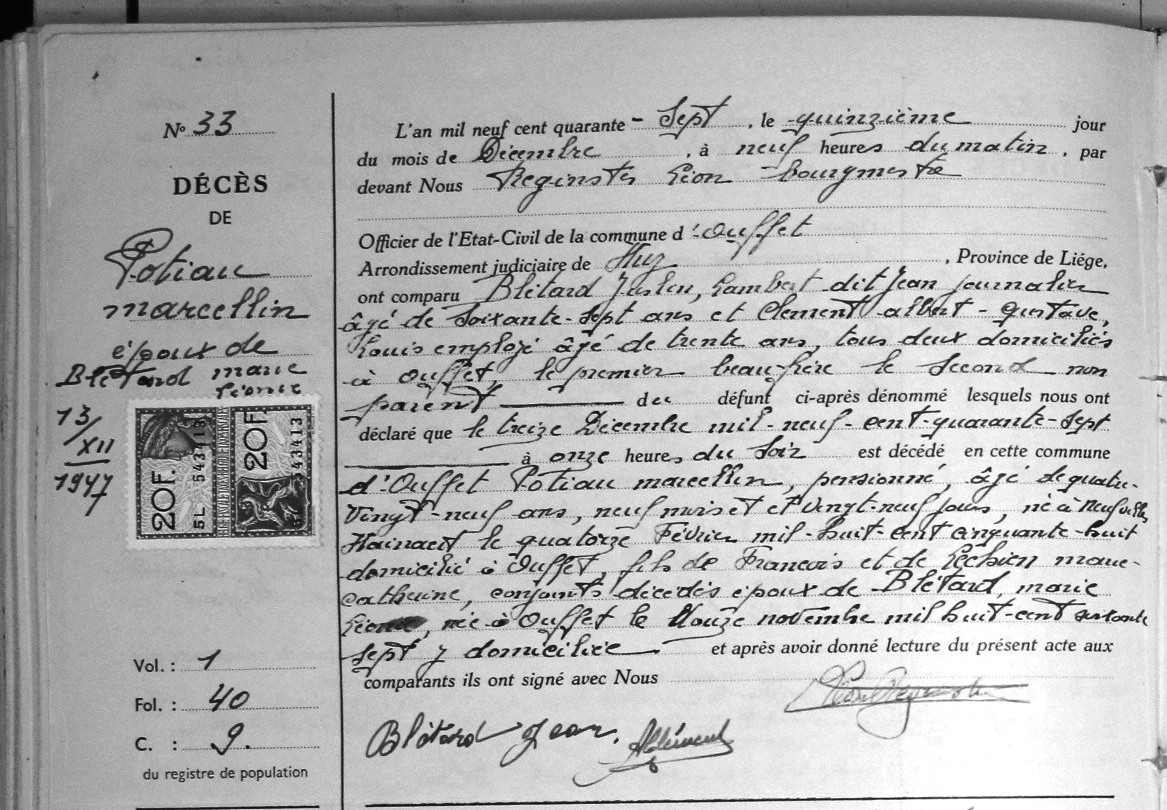 N° 33
DÉCÈS
DE
Potiau
marcellin
époux de
Blétard marie
Léonie
13/
XII
1947
20F.
5L
543413
20F.
543413
Vol. : 1
Fol. : 40
C. : 9.
du registre de population
L'an mil neuf cent quarante - Sept, le quinzième jour
du mois de Décembre, à neuf heures du matin, par
devant Nous Reginster Léon bourgmestre
Officier de l'Etat-Civil de la commune d'Ouffet
Arrondissement judiciaire de Huy, Province de Liége,
ont comparu Blétard Lambert dit Jean journalier
âgé de soixante-sept ans et Clement albert-Gustave,
Louis employé âgé de trente ans, tous deux domiciliés
à Ouffet le premier beau-frère le second non
parent du défunt ci-après dénommé lesquels nous ont
déclaré que le treize Décembre mil-neuf-cent-quarante-sept
à onze heures du Soir est décédé en cette commune
d'Ouffet Potiau marcellin, pensionné, âgé de quatre-
vingt-neuf ans, neuf mois et vingt-neuf jours, né à Neufvilles
Hainaut le quatorze Février mil-huit-cent cinquante-huit
domicilié à Ouffet, fils de Francois et de marie-
catherine, conjoints décedés époux de Blétard, marie
Léonie, née à Ouffet le novembre mil huit-cent soixante
sept y domiciliée. et après avoir donné lecture du présent acte aux
comparants ils ont signé avec Nous
Blétard Jean. AClément